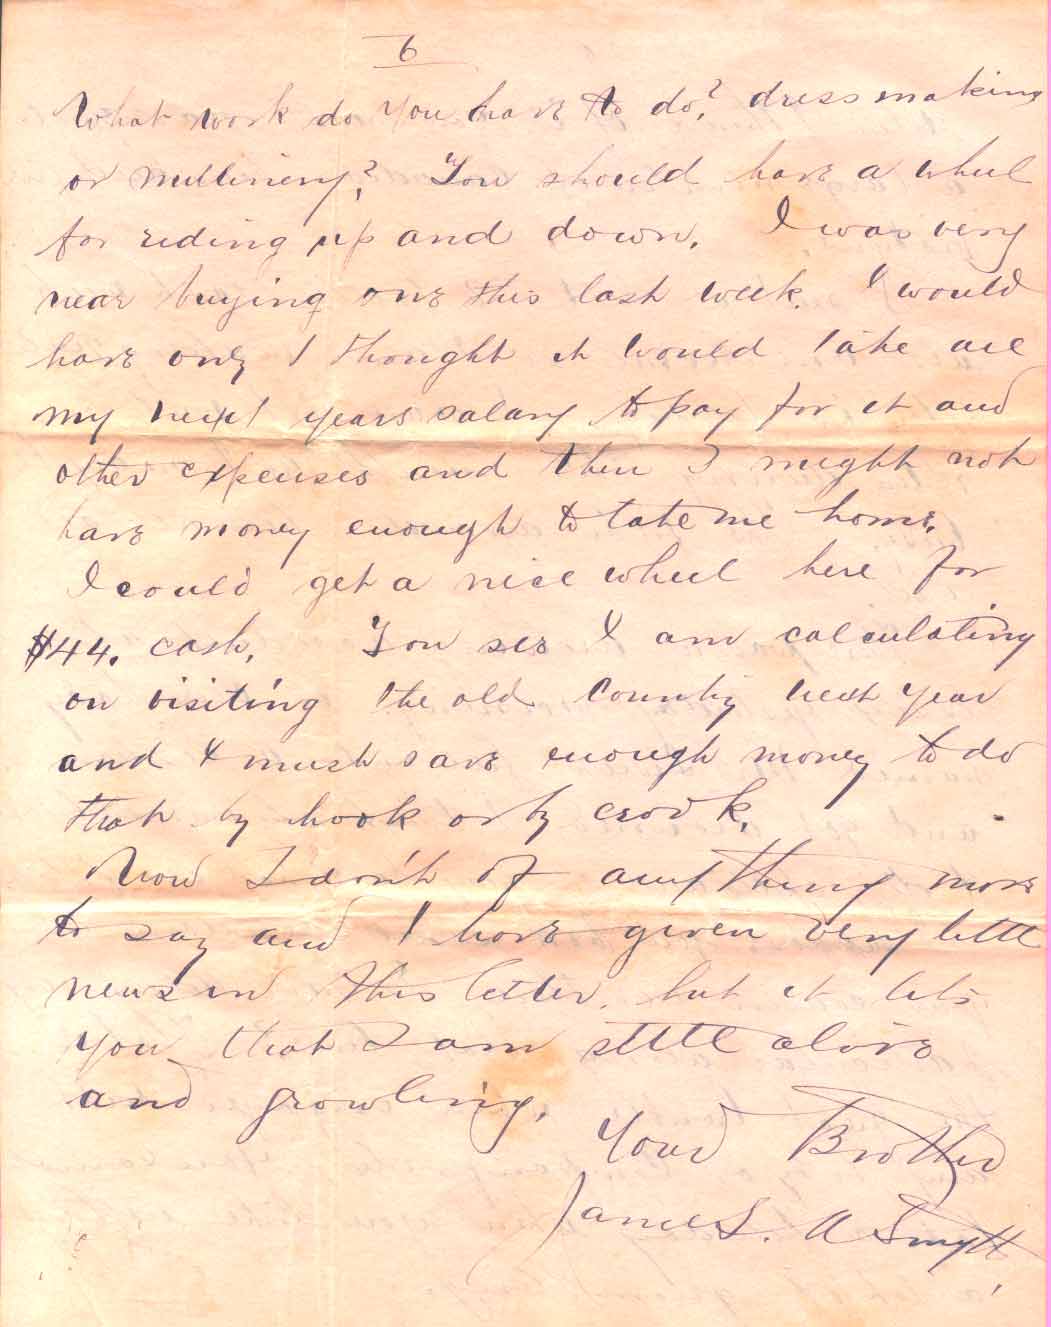 6
What work do you have to do? dress making
or millinery? You should have a wheel
for riding up and down. I was very
near buying one this last week. I would
have only I thought it would take all
my next years salary to pay for it and
other expenses and then I might not
have money enough to take me home.
I could get a nice wheel here for
$44. cash. You see I am calculating
on visiting the old County next year
and I must save enough money to do
that by hook or by crook.
Now I don't of any thing more
to say and I have given very little
news in this letter, but it lets
you that I am still alive
and growling.
Your Brother
James. A Smyth